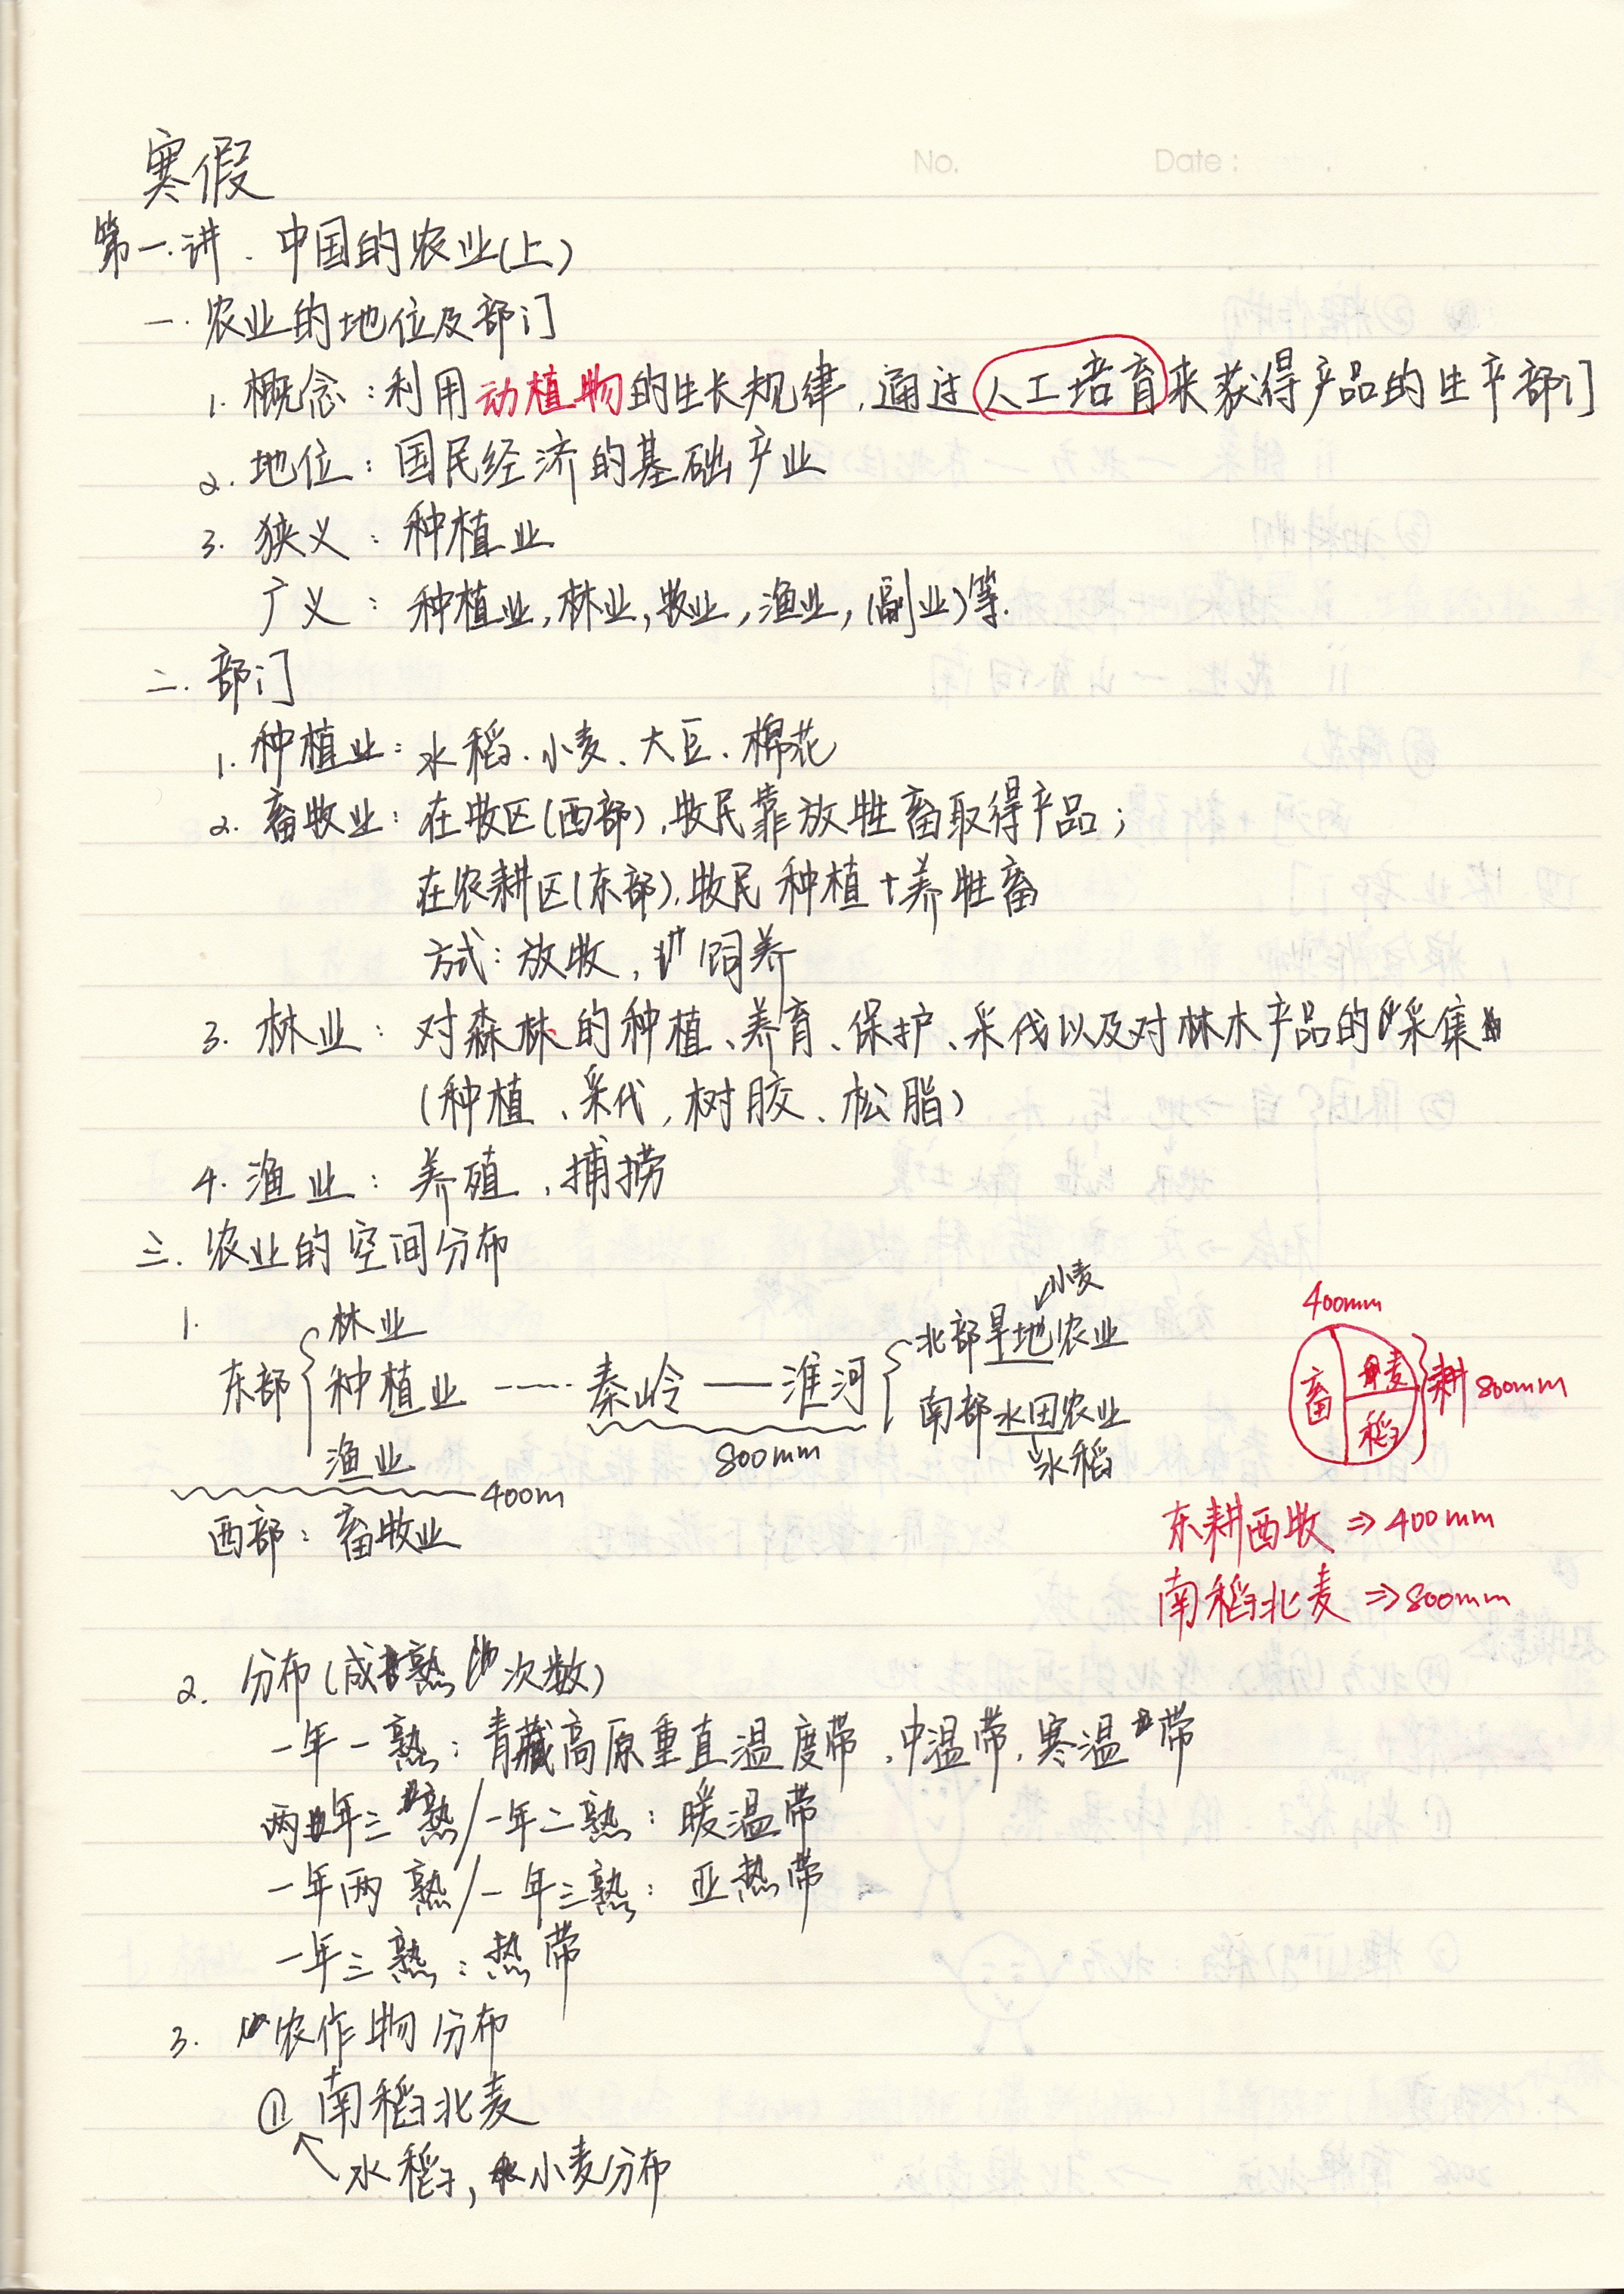 No. Date: . .
寒假
第一讲. 中国的农业(上)
一. 农业的地位及部门
1. 概念: 利用动植物的生长规律, 通过人工培育来获得产品的生产部门
2. 地位: 国民经济的基础产业
3. 狭义: 种植业
广义: 种植业, 林业, 牧业, 渔业, (副业)等.
二. 部门
1. 种植业: 水稻、小麦、大豆、棉花
2. 畜牧业: 在牧区(西部), 牧民靠放牲畜取得产品;
在农耕区(东部), 牧民种植+养牲畜
方式: 放牧, 饲养
3. 林业: 对森林的种植、养育、保护、采伐以及对林木产品的采集
(种植、采代, 树胶、松脂)
4. 渔业: 养殖、捕捞
三. 农业的空间分布
1.
林业
东部 种植业 ---- 秦岭——淮河
渔业
800mm
小麦
北部旱地农业
南部水田农业
水稻
400m
西部: 畜牧业
400mm
畜 麦 耕 800mm
稻
东耕西牧 ⇒ 400mm
南稻北麦 ⇒ 800mm
2. 分布(成熟次数)
一年一熟: 青藏高原垂直温度带, 中温带, 寒温带
两年三熟/一年二熟: 暖温带
一年两熟/一年三熟: 亚热带
一年三熟: 热带
3. 农作物分布
① 南稻北麦
水稻, 小麦分布